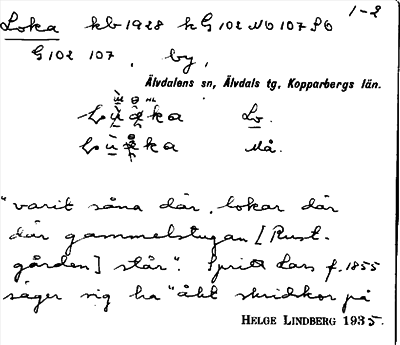 1-2
Loka kb 1928 k G 102 No 107 So
G 102 107, by,
Älvdalens sn, Älvdals tg, Kopparbergs län.
Lo.
Må.
"varit såna där lokar där
där gammelstugan [Rust-
gården] står". Sprita Lars f. 1855
säger sig ha "åkt skridkor på
HELGE LINDBERG 1935.